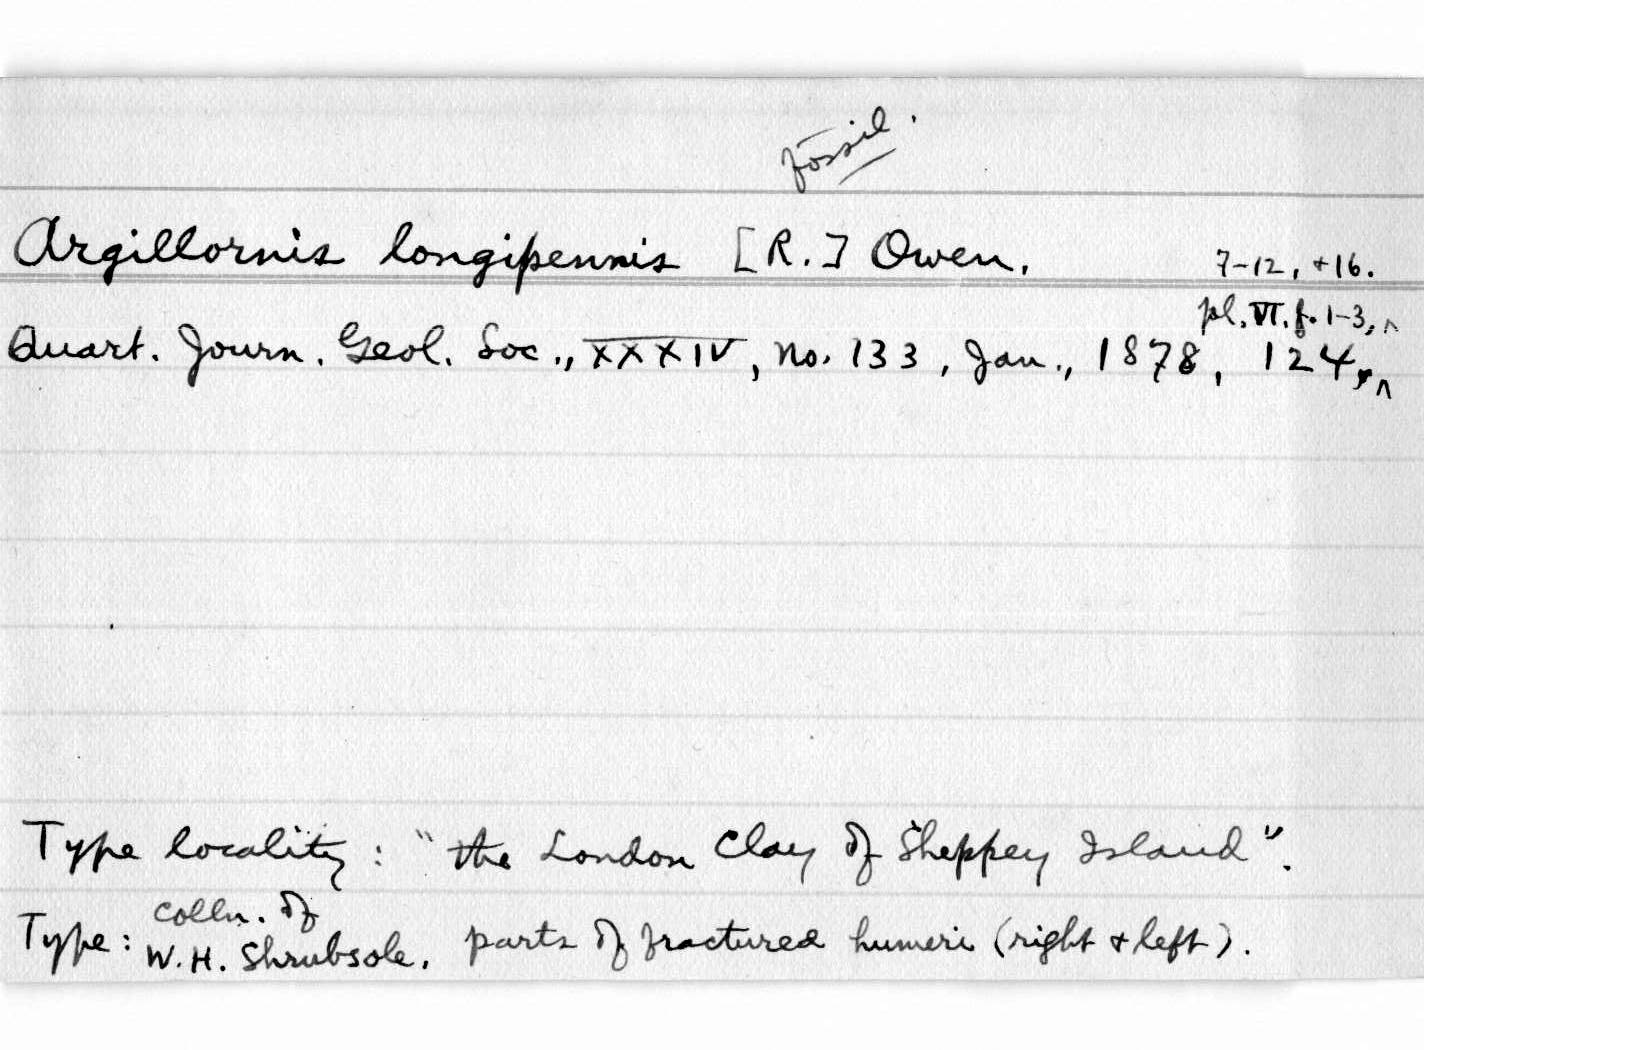 fossil.
Argillornis longipennis [R.] Owen.
7-12, +16.
pl. VI. f. 1-3, ^
Quart. Journ. Geol. Soc., XXXIV, no. 133, Jan., 1878, 124, ^
Type locality: "the London Clay of Sheppey Island".
colln. of
Type: W.H. Shrubsole. parts of fractured humeri (right + left).